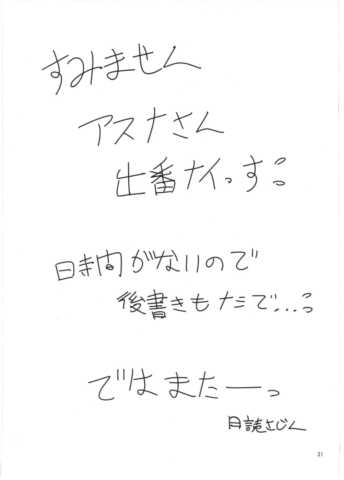 すみません
アスナさん
出番ナイっすっ
時間がないので
後書きもナシで...っ
ではまたーっ
月読さじん
31